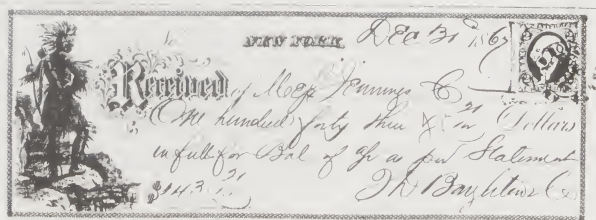 NEW YORK, Dec 31 186
Received of Mess Jennings & Co
One hundred forty three 21/100 Dollars
in full for Bal of a/c as per Statement
$143.21